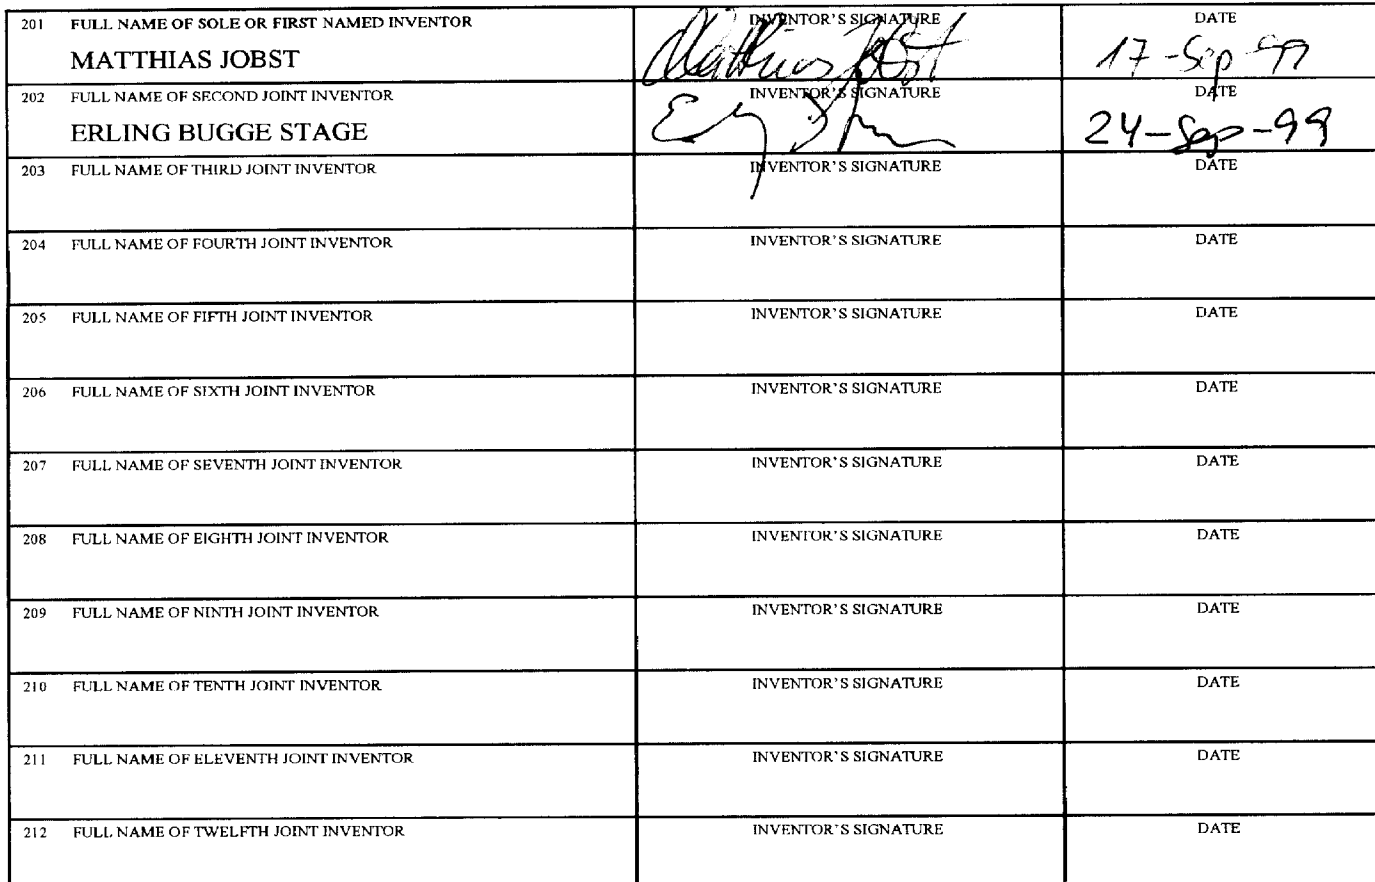 201 FULL NAME OF SOLE OR FIRST NAMED INVENTOR INVENTOR'S SIGNATURE DATE
MATTHIAS JOBST Matthias Jobst 17-Sep-99
202 FULL NAME OF SECOND JOINT INVENTOR INVENTOR'S SIGNATURE DATE
ERLING BUGGE STAGE 24-Sep-99
203 FULL NAME OF THIRD JOINT INVENTOR INVENTOR'S SIGNATURE DATE
204 FULL NAME OF FOURTH JOINT INVENTOR INVENTOR'S SIGNATURE DATE
205 FULL NAME OF FIFTH JOINT INVENTOR INVENTOR'S SIGNATURE DATE
206 FULL NAME OF SIXTH JOINT INVENTOR INVENTOR'S SIGNATURE DATE
207 FULL NAME OF SEVENTH JOINT INVENTOR INVENTOR'S SIGNATURE DATE
208 FULL NAME OF EIGHTH JOINT INVENTOR INVENTOR'S SIGNATURE DATE
209 FULL NAME OF NINTH JOINT INVENTOR INVENTOR'S SIGNATURE DATE
210 FULL NAME OF TENTH JOINT INVENTOR INVENTOR'S SIGNATURE DATE
211 FULL NAME OF ELEVENTH JOINT INVENTOR INVENTOR'S SIGNATURE DATE
212 FULL NAME OF TWELFTH JOINT INVENTOR INVENTOR'S SIGNATURE DATE